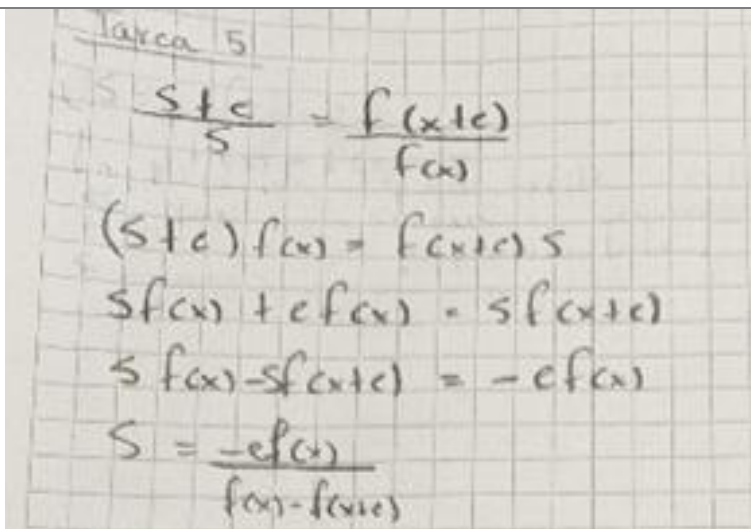 Tarea 5
s+e/s = f(x+e)/f(x)
(s+e) f(x) = f(x+e) s
s f(x) + e f(x) = s f(x+e)
s f(x) - s f(x+e) = - e f(x)
s = -e f(x)/f(x) - f(x+e)